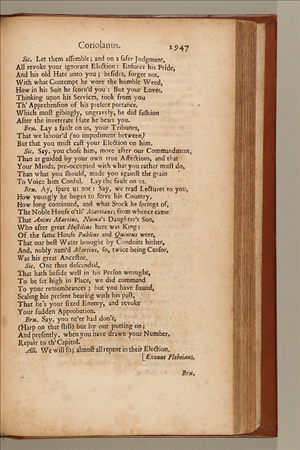 Coriolanus. 1947
Sic. Let them assemble; and on a safer Judgment,
All revoke your ignorant Election: Enforce his Pride,
And his old Hate unto you; besides, forget not,
With what Contempt he wore the humble Weed,
How in his Suit he scorn'd you: But your Loves,
Thinking upon his Services, took from you
Th' Apprehension of his present portance.
Which most gibingly, ungravely, he did fashion
After the inveterate Hate he bears you.
Bru. Lay a fault on us, your Tribunes,
That we labour'd (no impediment between)
But that you must cast your Election on him.
Sic. Say, you chose him, more after our Commandment,
Than as guided by your own true Affections, and that
Your Minds, pre-occupied with what you rather must do,
Than what you should, made you against the grain
To Voice him Consul. Lay the fault on us.
Bru. Ay, spare us not: Say, we read Lectures to you,
How youngly he began to serve his Country,
How long continued, and what Stock he springs of,
The Noble House o'th' Martians; from whence came
That Ancus Martius, Numa's Daughter's Son,
Who after great Hostilius here was King:
Of the same House Publius and Quintus were,
That our best Water brought by Conduits hither,
And, nobly nam'd Martius, so, twice being Censor,
Was his great Ancestor.
Sic. One thus descended,
That hath beside well in his Person wrought,
To be set high in Place, we did commend
To your remembrances; but you have found,
Scaling his present bearing with his past,
That he's your fixed Enemy, and revoke
Your sudden Approbation.
Bru. Say, you ne'er had don't,
(Harp on that still) but by our putting on;
And presently, when you have drawn your Number,
Repair to th' Capitol.
All. We will so; almost all repent in their Election,
[Exeunt Plebeians.
Bru.